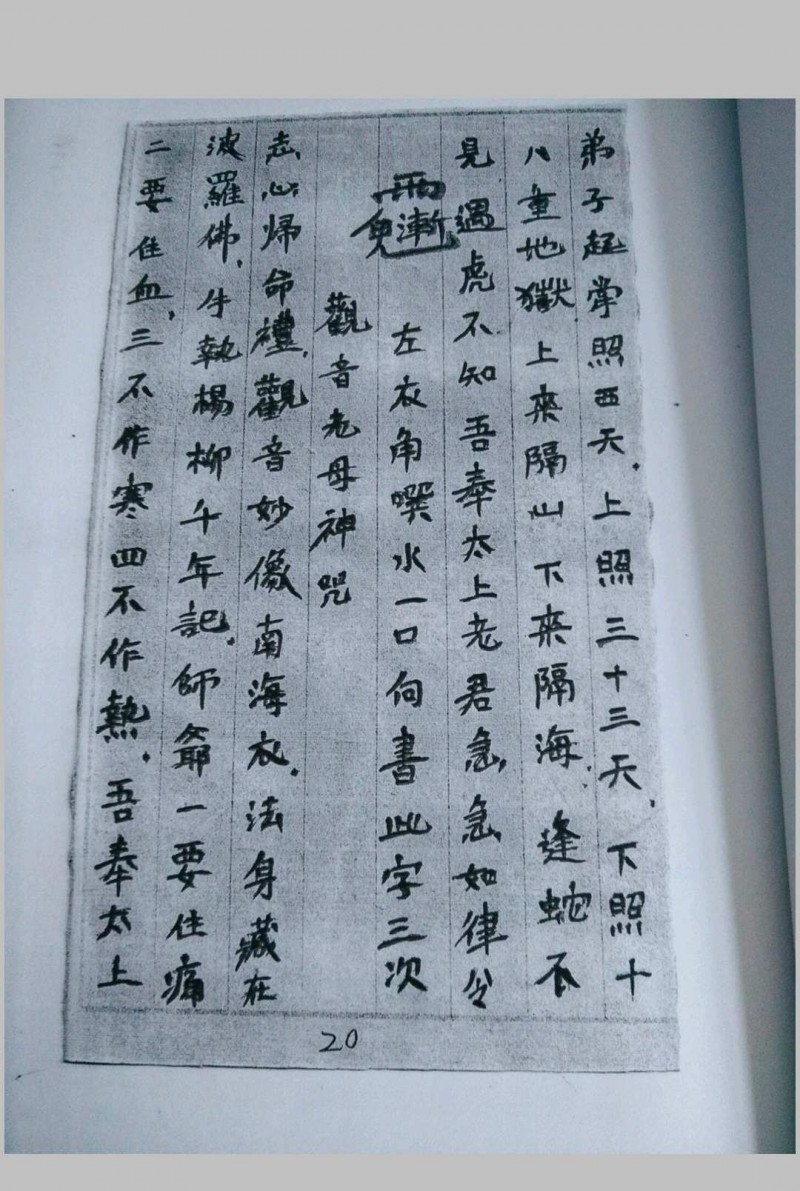 弟子起掌照西天.上照三十三天.下照十
八重地獄上來隔山下來隔海.逢蛇不
見遇虎不知吾奉太上老君急急如律令
左衣角噀水一口向書此字三次
觀音老母神咒
志心歸命禮.觀音妙像南海衣.法身藏在
波羅佛.牛執楊柳千年記.師爺一要住痛
二要住血.三不作寒四不作熱.吾奉太上
20